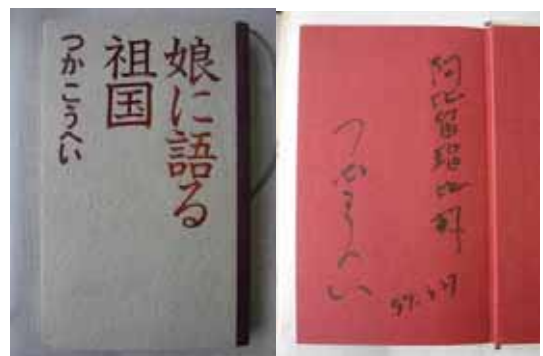 娘に語る
祖国
つかこうへい
阿比留瑠比
つかこうへい